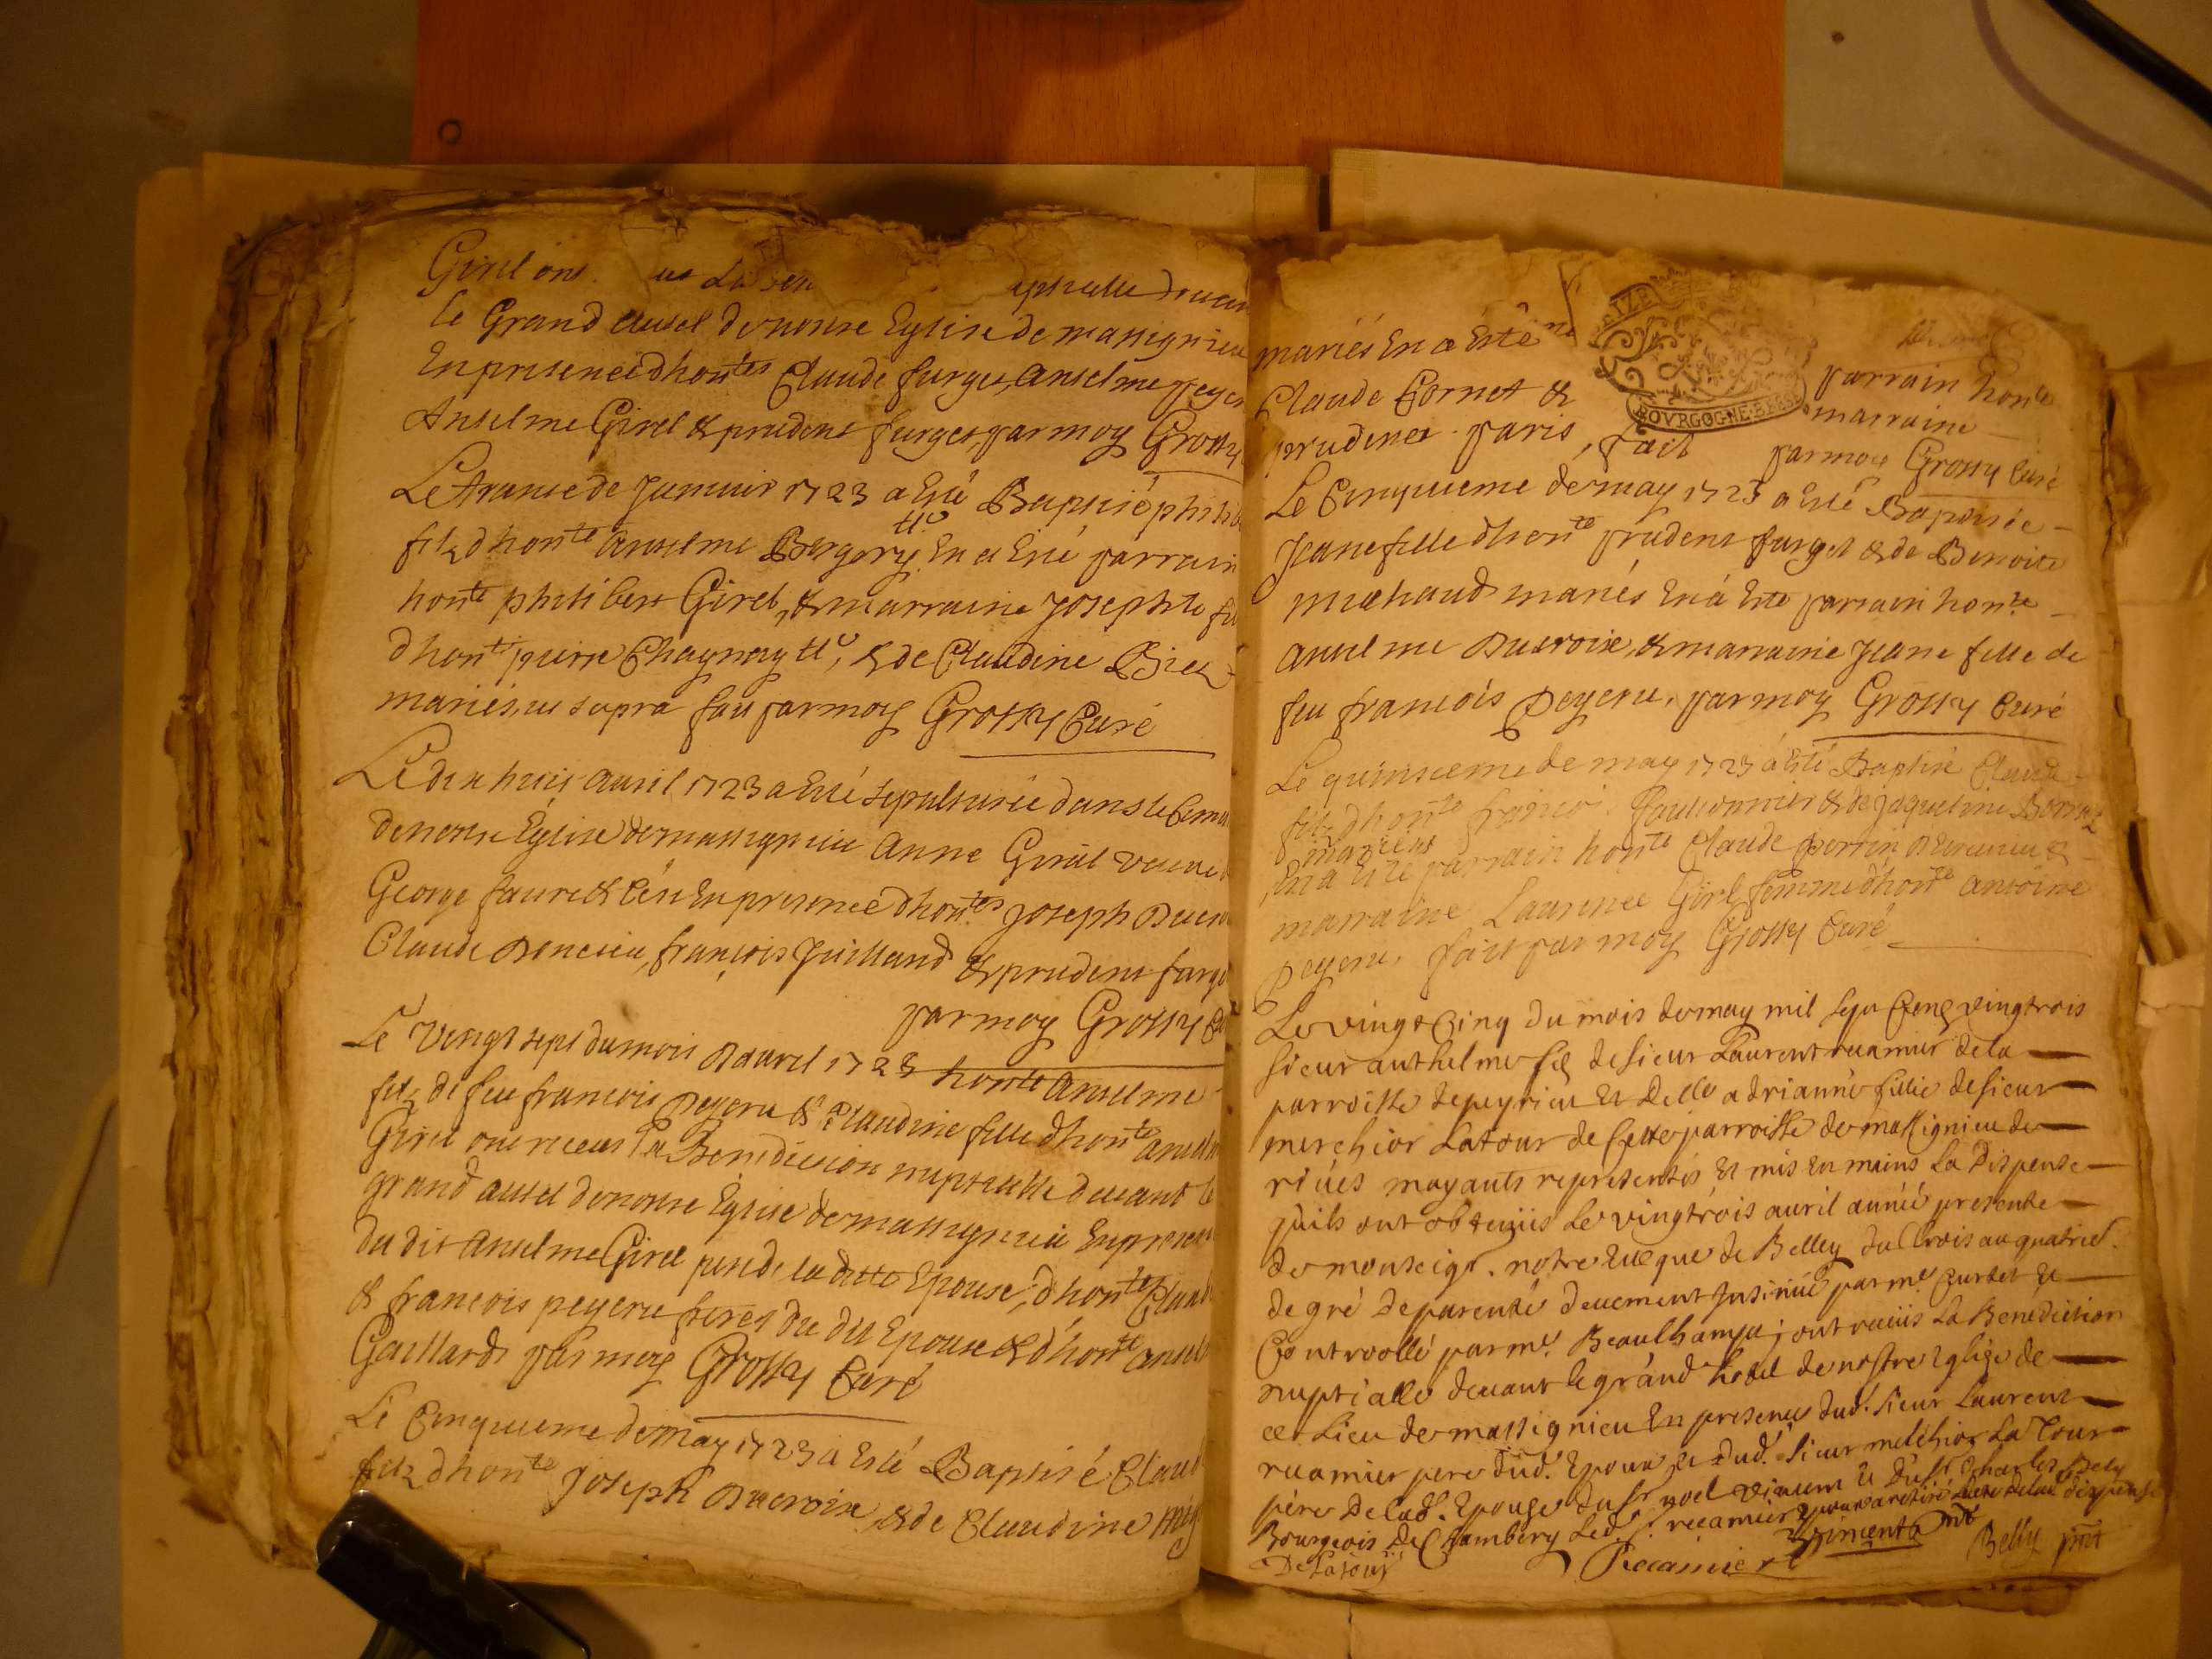 Girel ont
le Grand autel de nostre Eglise de massignieu
En presence d'hontes Claude furget, anselme peyer
Anselme Girel & prudent furget, par moy Grossy
Le trante de Januier 1723 a esté Baptisé philib
filz d'honte anselme Bergery tlr. En a esté parrain
honte philibert Girel, & marraine Josephte fil
d'honte pierre Chaynay tlr, & de Claudine Biez
mariés, ut supra fait par moy Grossy Curé
Le dix huit auril 1723 a Esté sepulturée dans le Cime
de nostre Eglise de massignieu Anne Girel veuve d
George faure & c'est En presence d'hontes Joseph Ducro
Claude Dencieu, françois Juilland & prudent furge
par moy Grossy Cu
Le Vingt sept du mois d'auril 1723 honte anselme
filz de feu francois Peyeru & Claudine fille d'honte ansel
Girel ont receus la Benediction nuptialle deuant le
grand autel de nostre Eglise de massignieu En presen
du dit Anselme Girel pere de la ditte Epouse, d'hontes Claud
& francois peyeru freres du dit Epoux & d'honte ansel
Gaillard, par moy Grossy Curé
Le Cinquieme de may 1723 a Esté Baptisé Claud
filz d'honte Joseph Ducroix, & de Claudine mig
mariés En a Esté
parrain honte
Claude Cornet &
marraine
BOVRGOGNE·BRESSE
prudence paris, fait par moy Grossy Curé
Le Cinquieme de may 1723 a Esté Baptisée
Jeane fille d'honte prudent furget & de Benoite
michaud mariés En a Esté parrain honte
anselme Ducroix, & marraine Jeane fille de
feu francois Peyeru, par moy Grossy Curé
Le quinsieme de may 1723 a Esté Baptisé Claude
filz d'honte francois fauconnier & de Jaqueline
mariés
En a Esté parrain honte Claude perrin &
marraine Laurence Girel femme d'honte antoine
Peyeru, fait par moy Grossy Curé
Le vingt Cinq du mois de may mil sept Cent vingtrois
sieur anthelme fils de sieur Laurent recamier de la
parroisse de peyrieu Et Delle adrianne fillie de sieur
merchior Latour de Cette parroisse de massignieu de
riues mayants representés Et mis En mains La dispense
quils ont obtenüs Le vingtrois auril année presente
de monseigr. notre Eueque de Belley du trois au quatries.
de gré de parenté deuement Insinué par me Curtet Et
Controollé par me. Beauchamp; ont recüs La Benediction
nuptialle deuant le grand hotel de nostre Eglize de
ce Lieu de massignieu En presence dud. sieur Laurent
recamier pere dud. Epoux, Et dud. sieur melchior La Tour
pere de lad. Epouse du sr noel vincent Et du sr charles Bely
Bourgeois de Chambery Led. sr. recamier Epoux a retiré lade dispense
De Latour
Recamier
Vincent
Belly pnt